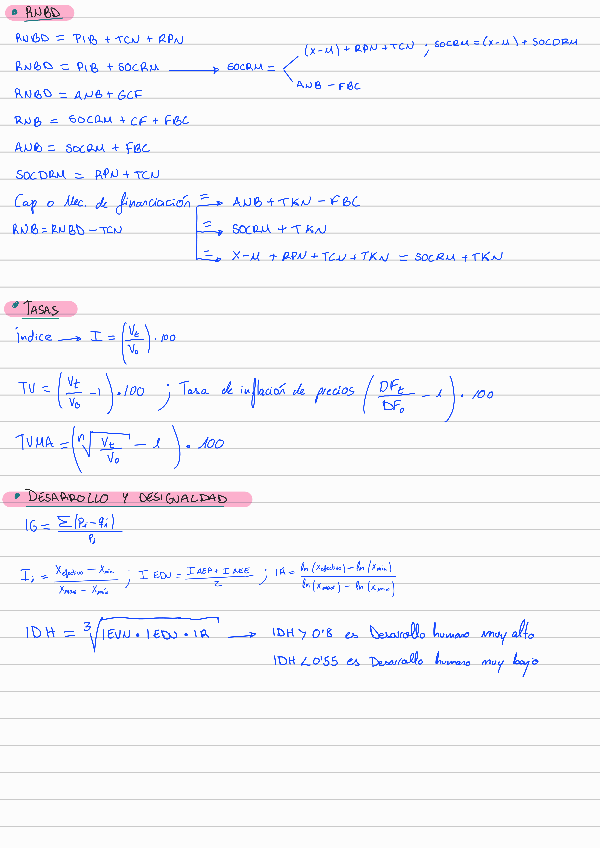 • RNBD
RNBD = PIB + TCN + RPN
(X-M) + RPN + TCN ; SOCRM = (X-M) + SOCDRM
RNBD = PIB + SOCRM → SOCRM =
ANB - FBC
RNBD = ANB + GCF
RNB = SOCRM + CF + FBC
ANB = SOCRM + FBC
SOCDRM = RPN + TCN
Cap o Nec. de financiación = → ANB + TKN - FBC
RNB = RNBD - TCN
= → SOCRM + TKN
= → X-M + RPN + TCN + TKN = SOCRM + TKN
• TASAS
índice → I = (Vt/V0) · 100
TV = (Vt/V0 - 1) · 100 ; Tasa de inflación de precios (DFt/DF0 - 1) · 100
TVMA = (ⁿ√(Vt/V0) - 1) · 100
• DESARROLLO Y DESIGUALDAD
IG = Σ(pi - qi)/pi
Ii = (Xefectivo - Xmin)/(Xmax - Xmín) ; I EDU = (I AEP + I AEE)/2 ; IR = (ln(Xefectivo) - ln(Xmin))/(ln(Xmax) - ln(Xmin))
IDH = ³√(IEVN · IEDU · IR) → IDH > 0'8 es Desarrollo humano muy alto
IDH < 0'55 es Desarrollo humano muy bajo